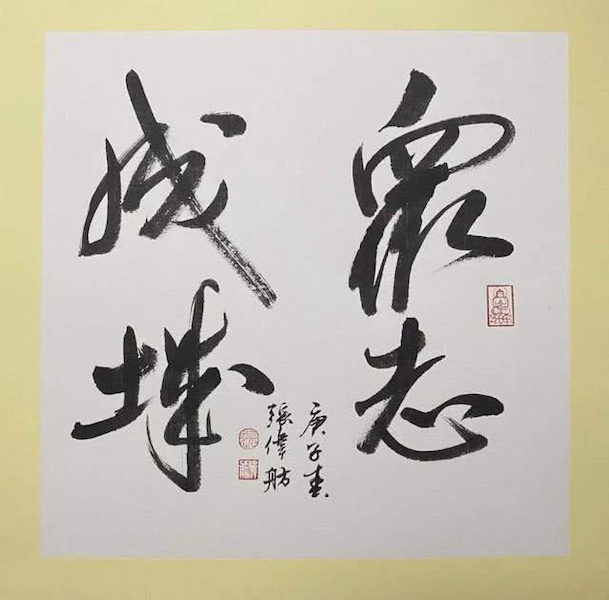 眾志
成城
庚子春
張偉舫